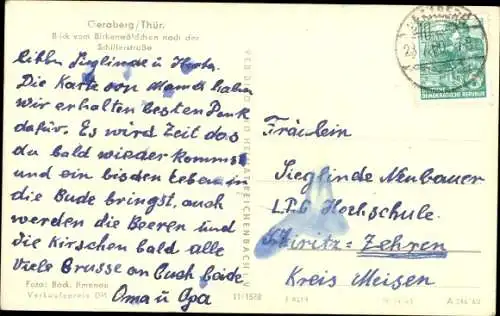 Geraberg/Thür.
Blick vom Birkenwäldchen nach der
Schillerstraße
Sieglinde u
Die Karte von haben
wir erhalten besten Dank
dafür. Es wird Zeit das
du bald wieder kommst
und ein bisden Leben in
die Bude bringst, auch
werden die Beeren und
die Kirschen bald alle
Viele Grüsse an Euch beide
Oma u Opa
Foto: Bock, Ilmenau
Verkaufspreis DM
II/1588
10
DEMOKRATISCHE REPUBLIK
Fräulein
Sieglinde Neubauer
LPG Hochschule
Zehren
Kreis Meisen